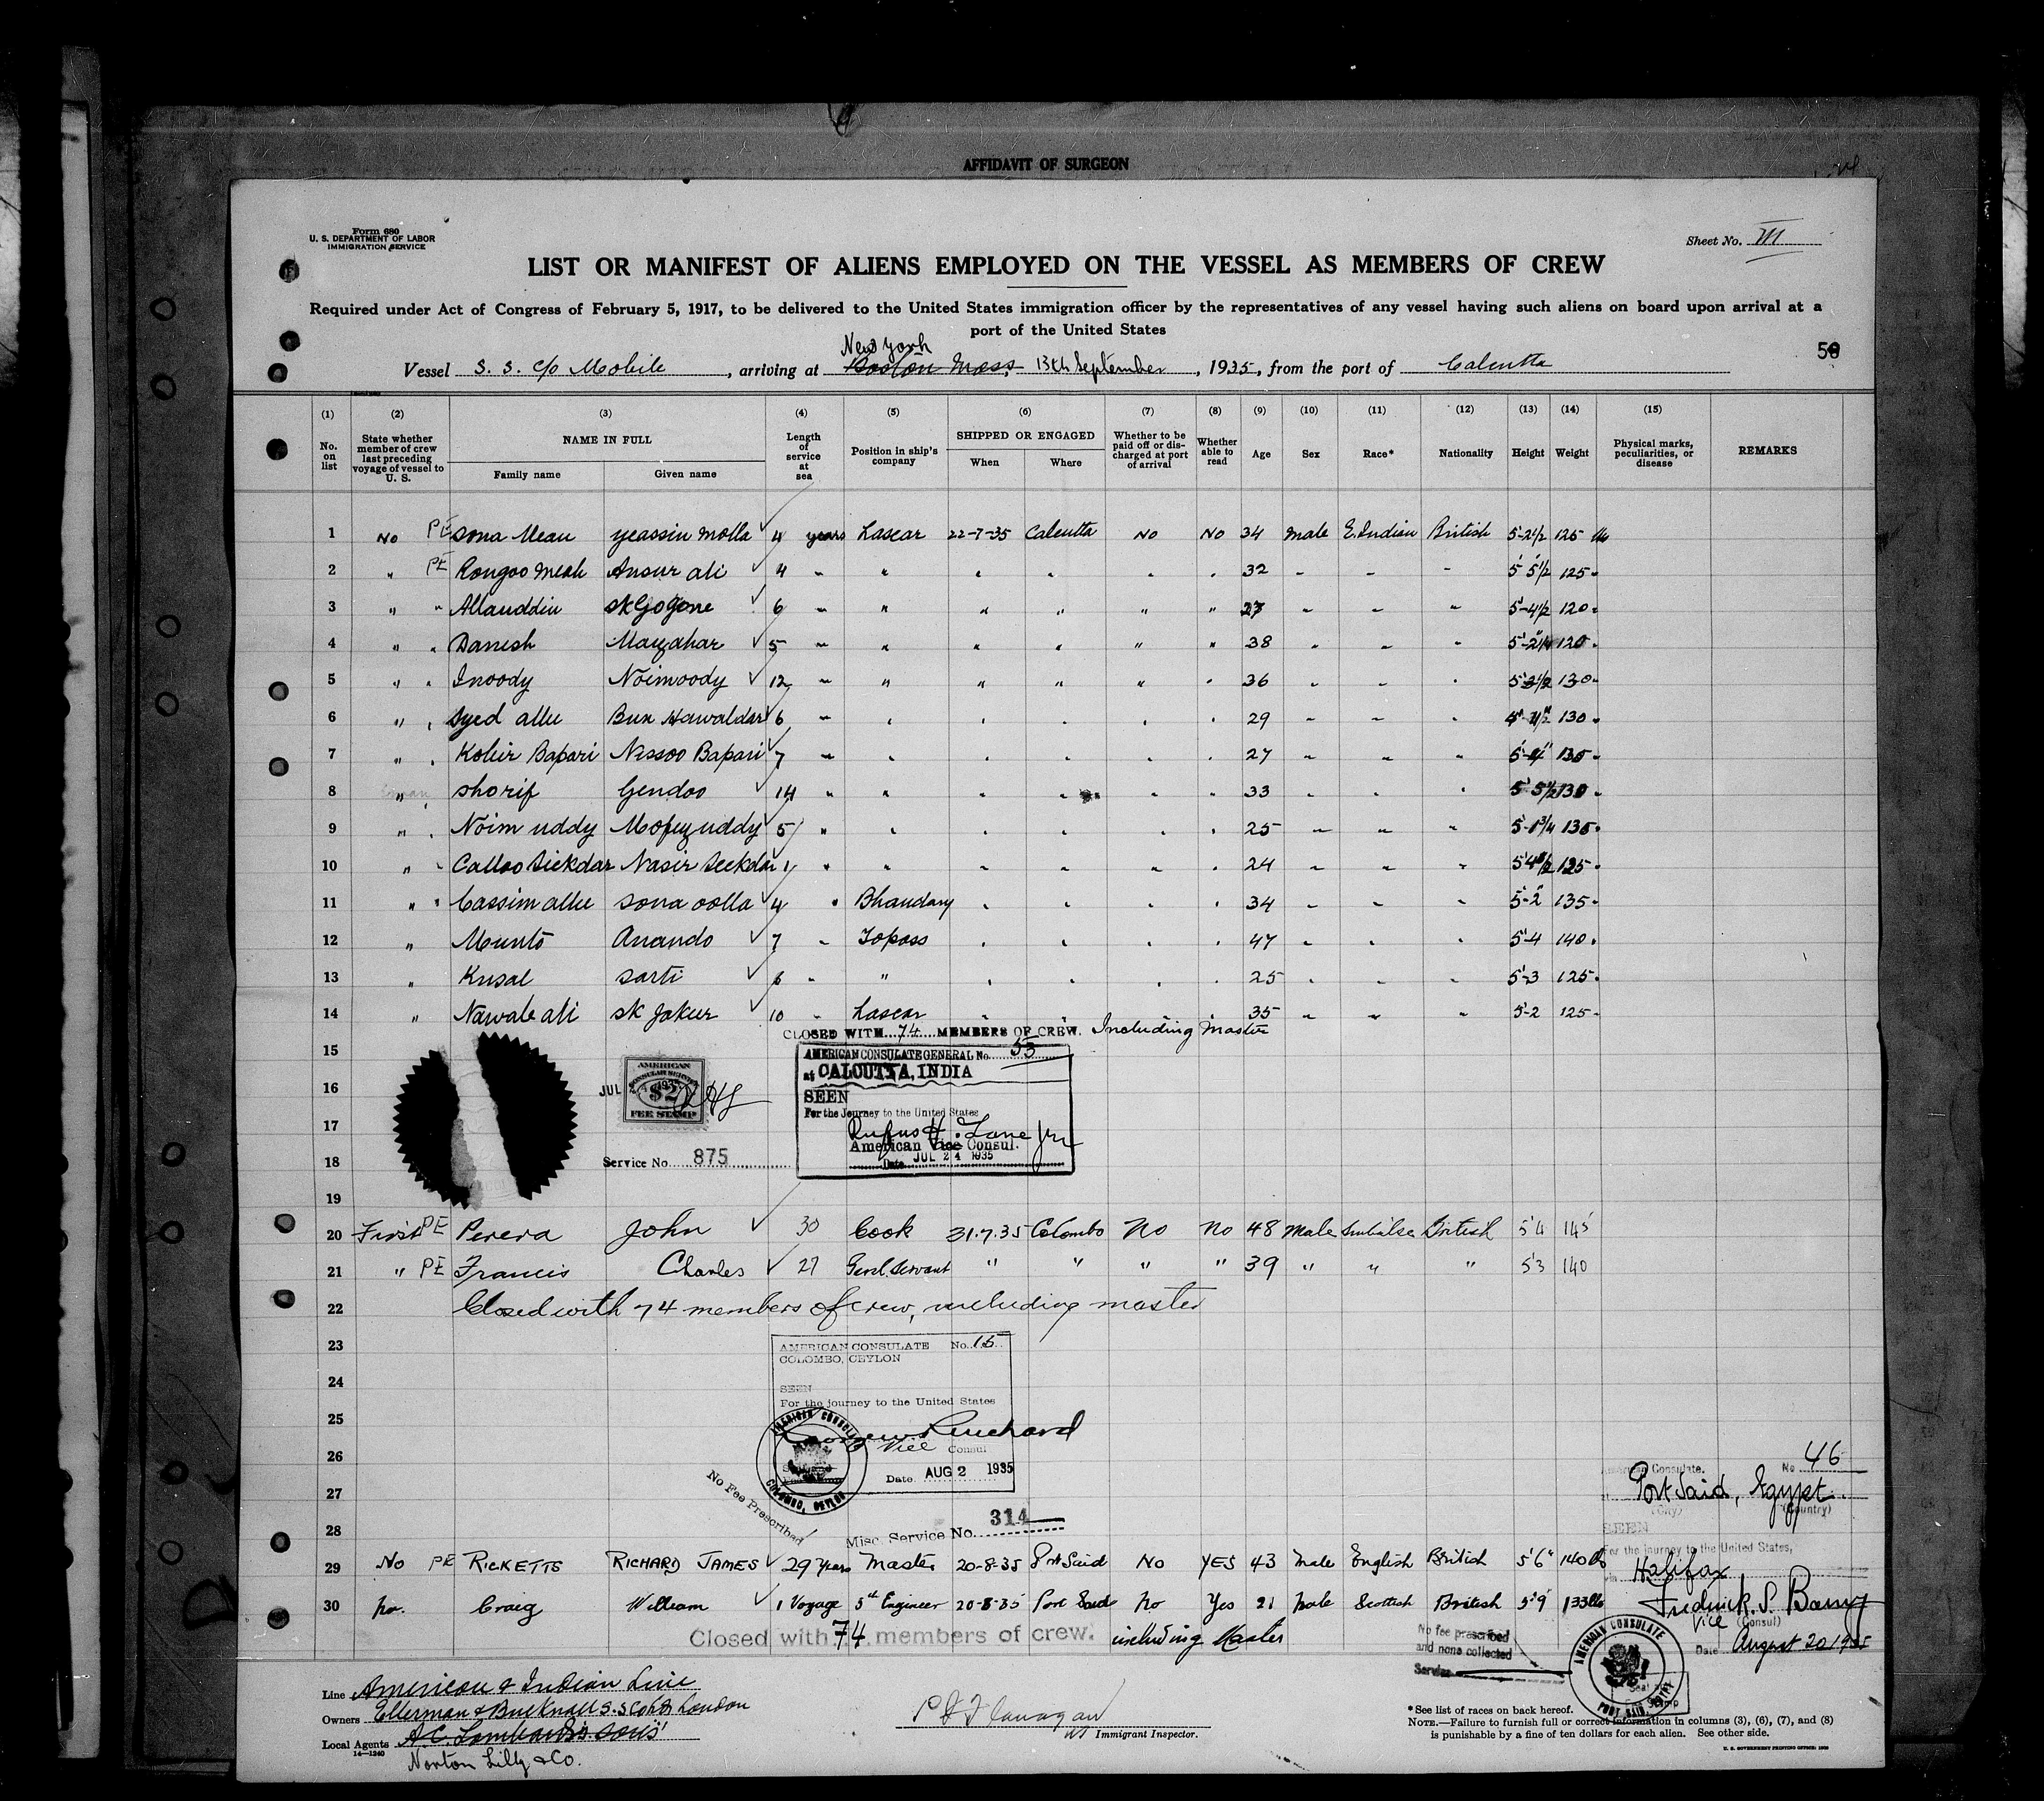 AFFIDAVIT OF SURGEON
Form 680
U. S. DEPARTMENT OF LABOR
IMMIGRATION SERVICE
Sheet No. III
LIST OR MANIFEST OF ALIENS EMPLOYED ON THE VESSEL AS MEMBERS OF CREW
Required under Act of Congress of February 5, 1917, to be delivered to the United States immigration officer by the representatives of any vessel having such aliens on board upon arrival at a
port of the United States
New York
Vessel S. S. C/o Mobile, arriving at Boston Mass, 13th September, 1935, from the port of Calcutta
(1) (2) (3) (4) (5) (6) (7) (8) (9) (10) (11) (12) (13) (14) (15)
No. on list State whether member of crew last preceding voyage of vessel to U. S. NAME IN FULL Family name Given name Length of service at sea Position in ship's company SHIPPED OR ENGAGED When Where Whether to be paid off or discharged at port of arrival Whether able to read Age Sex Race* Nationality Height Weight Physical marks, peculiarities, or disease REMARKS
1 No PE Sona Meau yeassin molla 4 years Lascar 22-7-35 Calcutta No No 34 male E.Indian British 5-2 1/2 125
2 " PE Rongoo meah Ansur ali 4 " " " " " " 32 " " " 5 5 1/2 125 "
3 " " Allauddin sk Gogone 6 " " " " " " 27 " " " 5-4 1/2 120 "
4 " " Danish 5 " " " " " " 38 " " " 120 "
5 " " Inoody Noimoody 12 " " " " " " 36 " " " 130 "
6 " " Syed allu Bux Hawaldar 6 " " " " " " 29 " " " 130 "
7 " " Kobir Bapari Nissoo Bapari 7 " " " " " " 27 " " " 135 "
8 " " Shorif Gendoo 14 " " " " " " 33 " " " 5 5 1/2 130 "
9 " " Noim uddy Mofizuddy 5 " " " " " " 25 " " " 5-1 3/4 135 "
10 " " Calloo Sickdar Nasir Seekdar 1 " " " " " " 24 " " " 125 "
11 " " Cassim allu Sona oolla 4 " Bhandary " " " " 34 " " " 5-2 135 "
12 " Munto Anando 7 " Topass " " " " 47 " " " 5-4 140 "
13 " Kusal Sarti 6 " " " " " " 25 " " " 5-3 125 "
14 " Nawab ali sk Jakur 10 " Lascar " " " " 35 " " " 5-2 125 "
CLOSED WITH 74 MEMBERS OF CREW. Including Master
15
AMERICAN CONSULATE GENERAL No. 53
at CALCUTTA, INDIA
16
JUL
AMERICAN
CONSULAR SERVICE
$2
FEE STAMP
SEEN
For the Journey to the United States
17
Rufus H. Lane Jr
American Vice Consul.
Date JUL 24 1935
18
Service No. 875
19
20 First PE Perera John 30 Cook 31.7.35 Colombo No No 48 Male Sinhalse British 5 4 145
21 " PE Francis Charles 27 Genl. Servant " " " " 39 " " " 5 3 140
22 Closed with 74 members of crew, including master
23
AMERICAN CONSULATE No. 15
COLOMBO, CEYLON
24
SEEN
For the journey to the United States
25
26
Vice Consul
Date AUG 2 1935
AMERICAN CONSULATE
COLOMBO, CEYLON
No Fee Prescribed
27
28
Misc. Service No. 314
American Consulate. No 46
Port Said, Egypt
(City) (Country)
SEEN
For the journey to the United States,
Halifax
Frederick. S. Barny
Vice (Consul)
Date August 20 1935
29 No PE RICKETTS RICHARD JAMES 29 Years Master 20-8-35 Port Said No YES 43 Male English British 5'6" 140 lbs
30 no. Craig William 1 Voyage 5th Engineer 20-8-35 Port Said No Yes 21 Male Scottish British 5'9 133 lbs
Closed with 74 members of crew. including Master
No fee prescribed
and none collected
Service
AMERICAN CONSULATE
PORT SAID, EGYPT
Line American & Indian Line
Owners Ellerman & Bucknall S. S Co Ltd London
Local Agents A.C. Lombard's sons
14—1240
Norton Lilly & Co.
Immigrant Inspector.
*See list of races on back hereof.
NOTE.—Failure to furnish full or correct information in columns (3), (6), (7), and (8)
is punishable by a fine of ten dollars for each alien. See other side.
U. S. GOVERNMENT PRINTING OFFICE